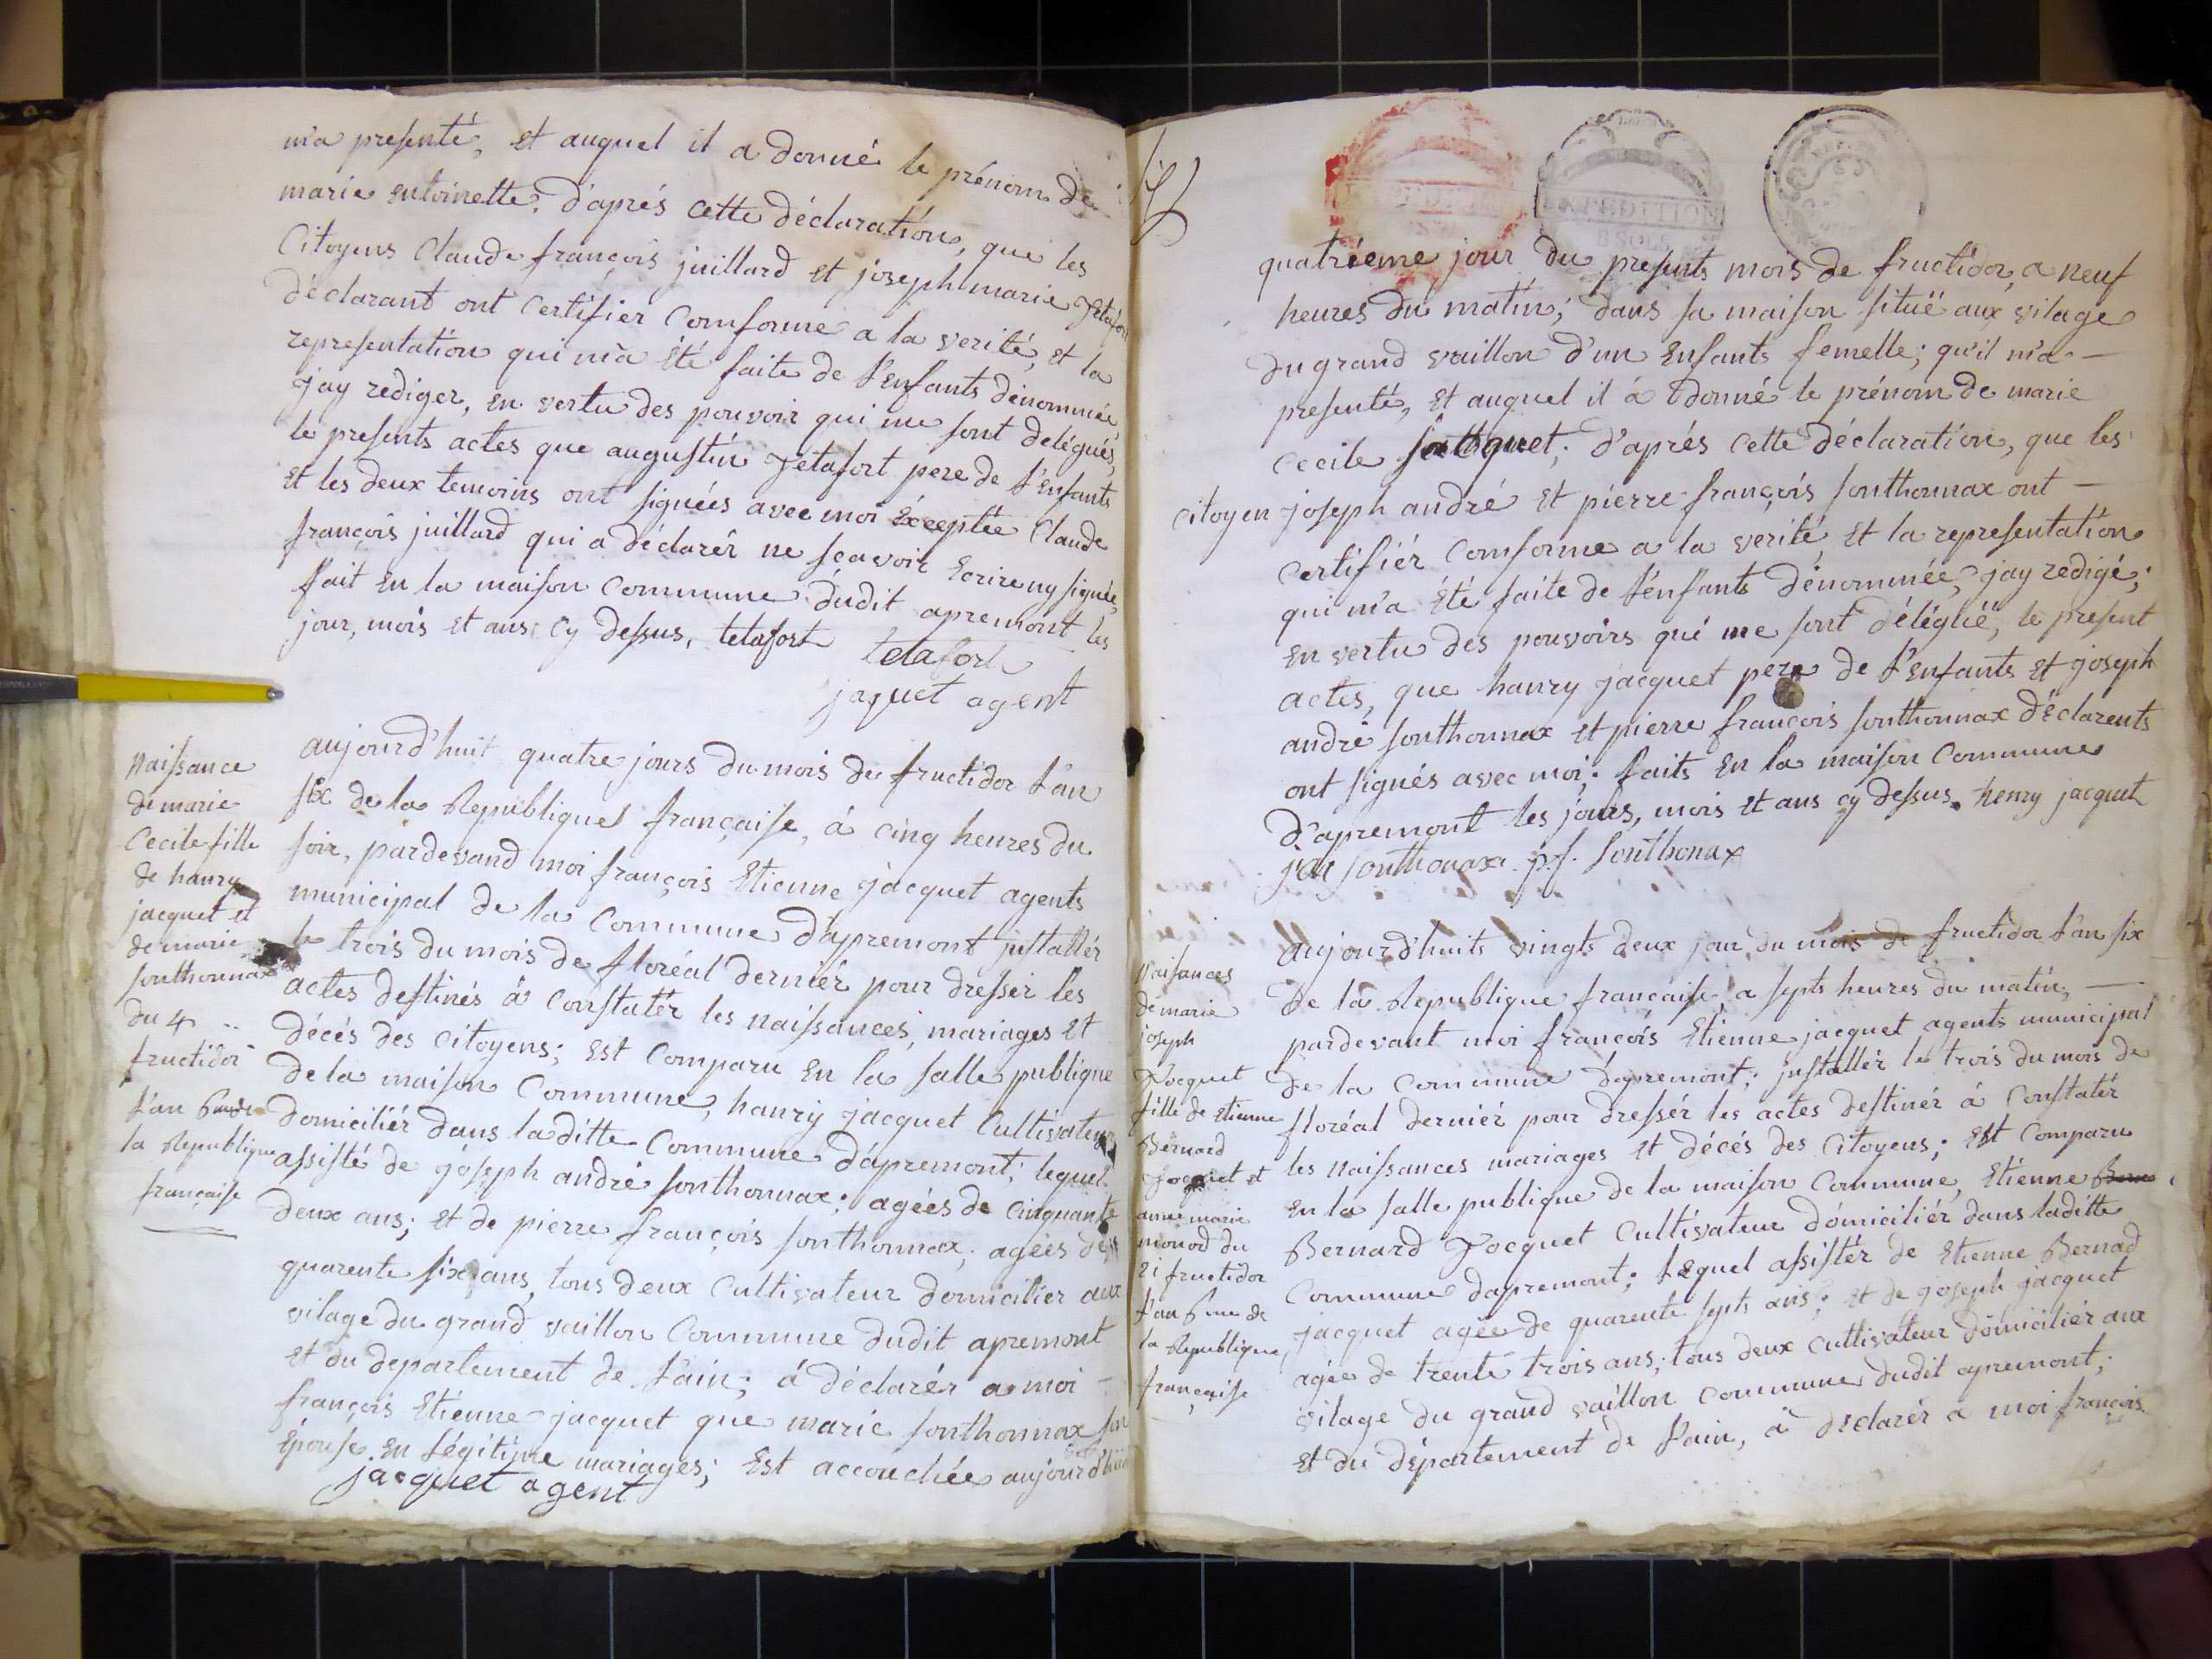 m'a presenté, et auquel il a donné le prénom de
marie entoinette. d'aprés cette déclaration, que les
Citoyens Claude françois juillard et joseph marie Jetafort
déclarant ont certifiér Comforme a la verité, et la
representation qui m'a Été faite de l'enfants dénommée
jay rediger, en vertu des pouvoir qui me sont delégués,
le presents actes que augustin Jetafort pere de l'enfants
et les deux temoins ont signées avec moi Exceptée Claude
françois juillard qui a déclarér ne sçavoir Ecrire ny signée,
fait en la maison Commune dudit apremont les
jour, mois et ans cy dessus, tetafort
tetafort
jaquet agent
Naissance
de marie
Cecile fille
de hanry
jacquet et
de marie
sonthonnax
du 4
fructidor
l'an 6 me de
la Republique
française
aujourd'huit quatre jours du mois de fructidor l'an
six de la Republiques française, á cinq heures du
soir, pardevand moi françois Etienne jacquet agents
municipal de la Commune d'apremont justallér
le trois du mois de floréal derniér pour dresser les
actes destinés á Constatér les naissances, mariages et
décés des citoyens; est Comparu en la salle publique
de la maison Commune, hanry jacquet Cultivateur
domiciliér dans laditte Commune d'apremont; lequel
assisté de joseph andré sonthonnax; agées de cinquante
deux ans; et de pierre françois sonthonnax, agées de
quarente six ans, tous deux Cultivateur domicilier aux
vilage du grand vaillon Commune dudit apremont
et du departement de l'ain; á déclarér a moi -
françois Etienne jacquet que marie sonthonnax son
épouse en légitime mariages; Est accouchée aujourd'hui
jacquet agent
quatriéeme jour du presents mois de fructidor, a neuf
heures du matin; dans sa maison situë aux vilage
du grand vaillon d'un enfants femelle; qu'il m'a -
presenté, et auquel il á donné le prénom de marie
cecile jacquet; d'aprés cette déclaration, que les
citoyen joseph andré et pierre françois sonthonnax ont -
certifiér Comforme a la verité, et la representation
qui m'a Été faite de l'enfants dénommée, jay redigé;
en vertu des pouvoirs qui me sont déléguë, le present
actes, que hanry jacquet pere de l'enfants et joseph
andré sonthonnax et pierre francois sonthonnax déclarents
ont signés avec moi; faits en la maison Commune
d'apremont les jours, mois et ans cy dessus. henry jacquet
sonthonax p.f. sonthonax
Naisances
de marie
joseph
Jocquet
fille de etienne
Bernard
Jocquet et
anne marie
monod du
21 fructidor
l'an 6 me de
la Republique,
française
aujourd'huits vingts deux jour du mois de fructidor l'an six
de la Republique française, a septs heures du matin, -
pardevant moi francois Etienne jacquet agents municipal
de la Commune d'apremont; justallér le trois du mois de
floréal derniér pour dressér les actes destinér á Constatér
les naissances mariages et décés des citoyens; est Comparu
en la salle publique de la maison Commune, Etienne
Bernard Jocquet Cultivateur domiciliér dans laditte
Commune dapremont; lequel assistér de Etienne Bernad
jacquet agée de quarente septs ans; et de joseph jacquet
agée de trente trois ans; tous deux cultivateur domiciliér aux
vilage du grand vaillon Commune dudit apremont;
et du département de l'ain, á déclarér a moi françois
EXPEDITION
8 SOLS